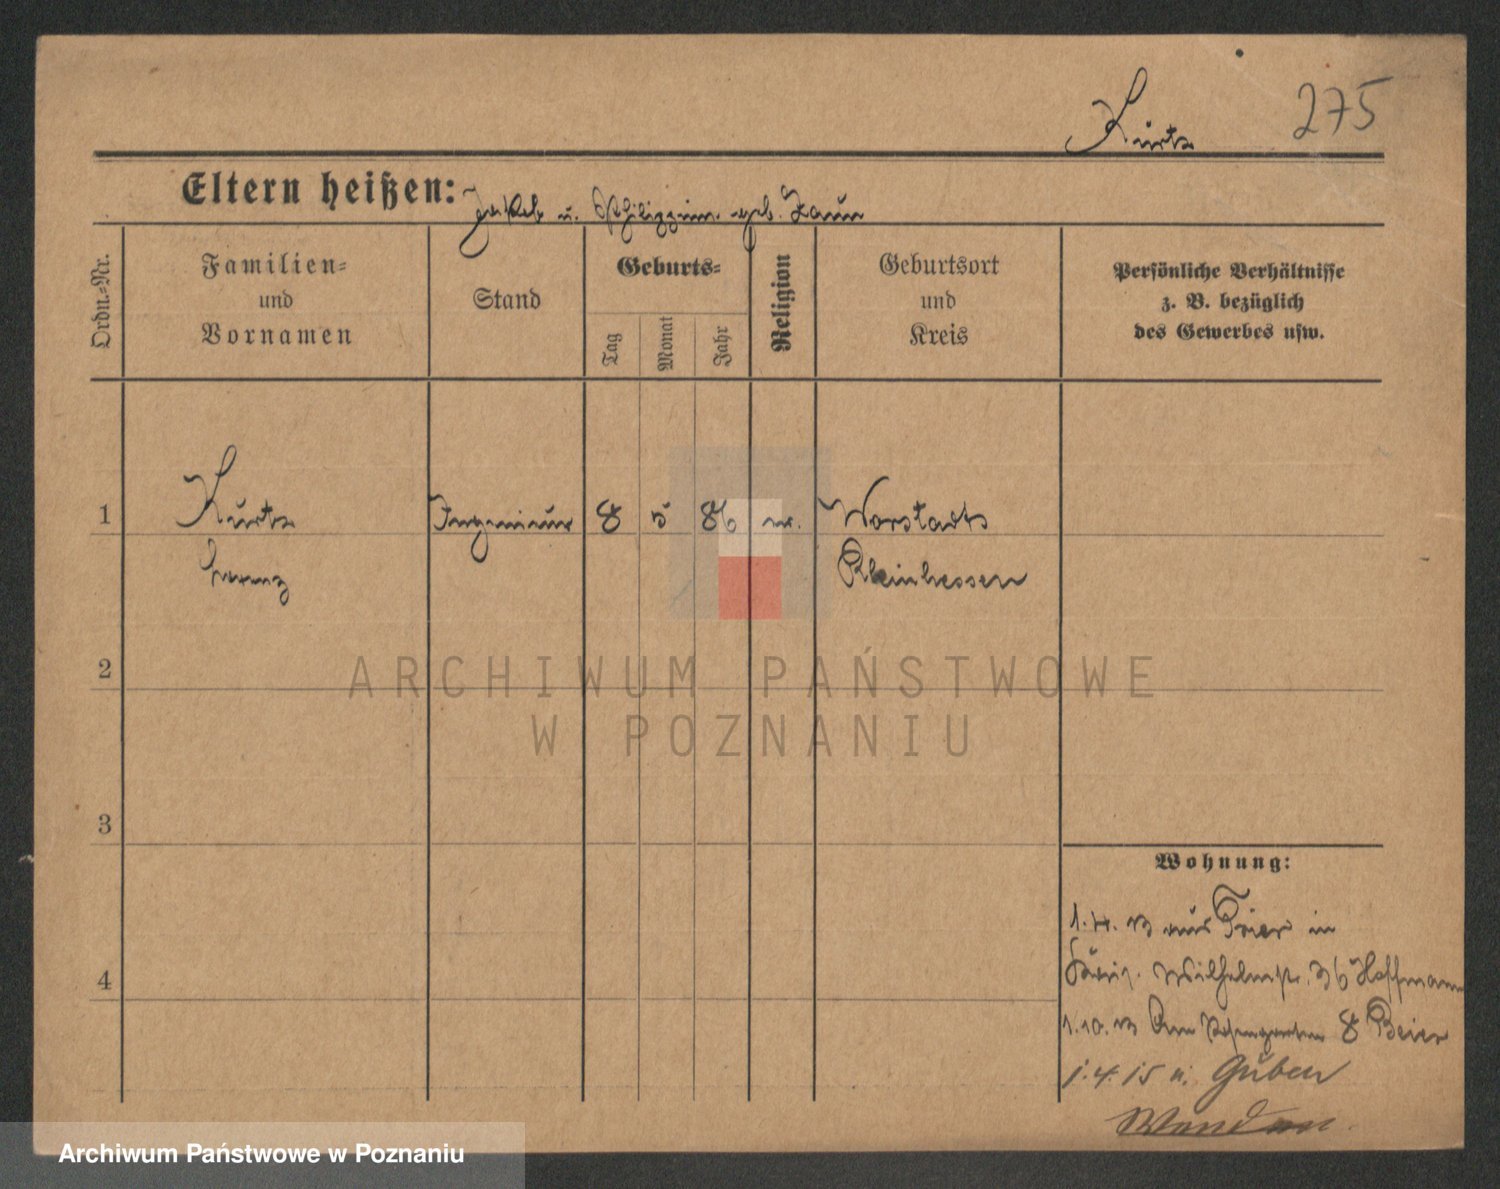 Kurtz 275
Eltern heißen: Jakob u. Philippine geb. Zaun
Ordn.-Nr.
Familien-
und
Vornamen
Stand
Geburts-
Tag
Monat
Jahr
Religion
Geburtsort
und
Kreis
Persönliche Verhältnisse
z. B. bezüglich
des Gewerbes usw.
1 Kurtz Ingenieur 8 5 86 Worstadt
Franz Rheinhessen
2
3
4
Wohnung:
1.4.13 aus Trier in
Wilhelmstr. 36 Hoffmann
1.10.13 Am Rosengarten 8 Beier
1.4.15 n. Guben
ARCHIWUM PAŃSTWOWE
W POZNANIU
Archiwum Państwowe w Poznaniu